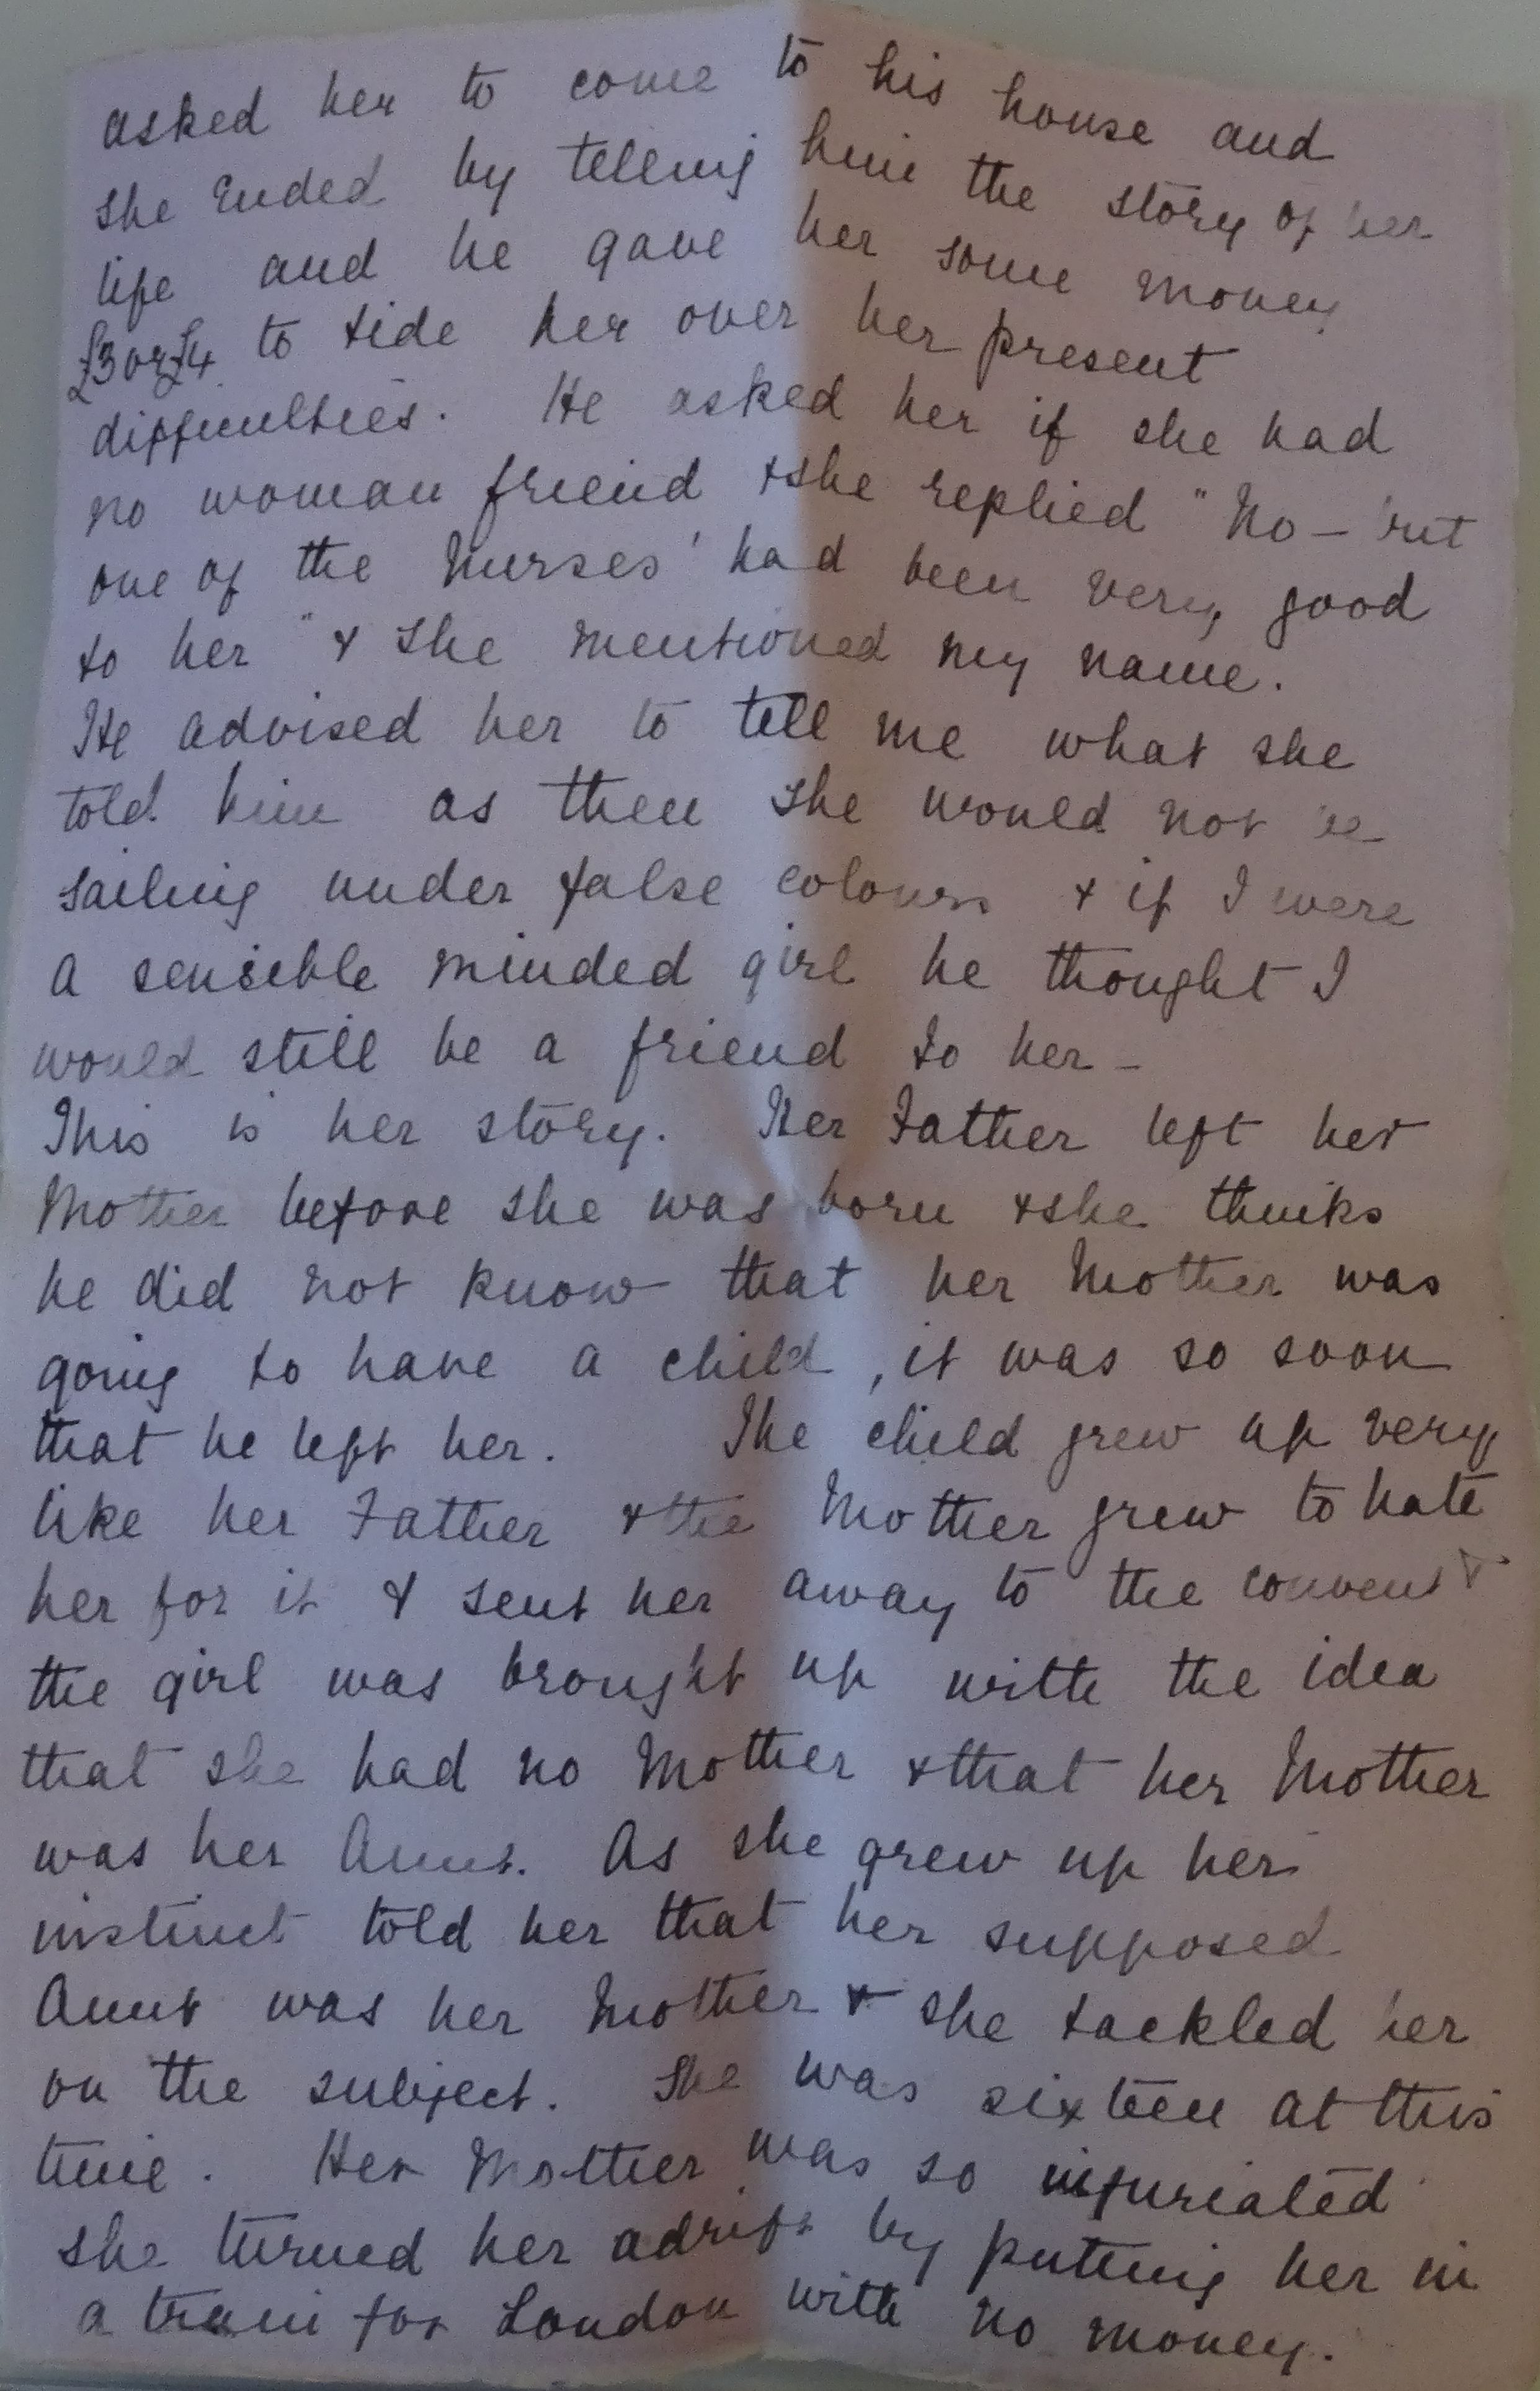 asked her to come to his house and
she ended by telling him the story of her
life and he gave her some money
£3 or £4 to tide her over her present
difficulties. He asked her if she had
no woman friend & she replied "No – but
one of the Nurses' had been very good
to her" & she mentioned my name.
He advised her to tell me what she
told him as then she would not be
sailing under false colours & if I were
a sensible minded girl he thought I
would still be a friend to her –
This is her story. Her Father left her
Mother before she was born & she thinks
he did not know that her Mother was
going to have a child, it was so soon
that he left her. The child grew up very
like her Father & the Mother grew to hate
her for it & sent her away to the convent &
the girl was brought up with the idea
that she had no Mother & that her Mother
was her Aunt. As she grew up her
instinct told her that her supposed
Aunt was her Mother & she tackled her
on the subject. She was sixteen at this
time. Her Mother was so infuriated
she turned her adrift by putting her in
a train for London with no money.